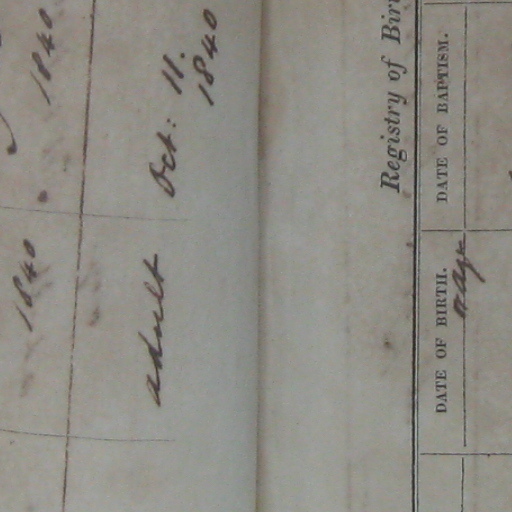 1840 1840
adult Oct: 11.
1840
Registry of Birt
DATE OF BIRTH. DATE OF BAPTISM.
or age